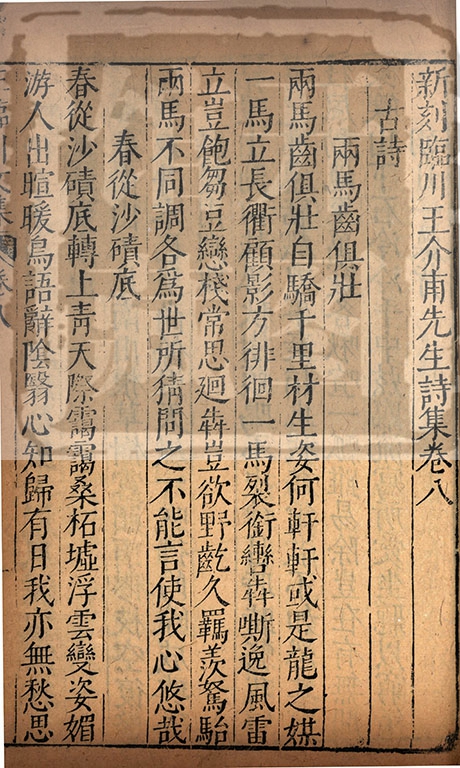 新刻臨川王介甫先生詩集卷八
古詩
兩馬齒俱壯
兩馬齒俱壯自驕千里材生姿何軒軒或是龍之媒
一馬立長衢顧影方徘徊一馬裂銜轡犇嘶逸風雷
立豈飽芻豆戀棧常思迴犇豈欲野齕久羈羨駑駘
兩馬不同調各爲世所猜問之不能言使我心悠哉
春從沙磧底
春從沙磧底轉上青天際靄靄桑柘墟浮雲變姿媚
游人出暄暖鳥語辭陰翳心知歸有日我亦無愁思